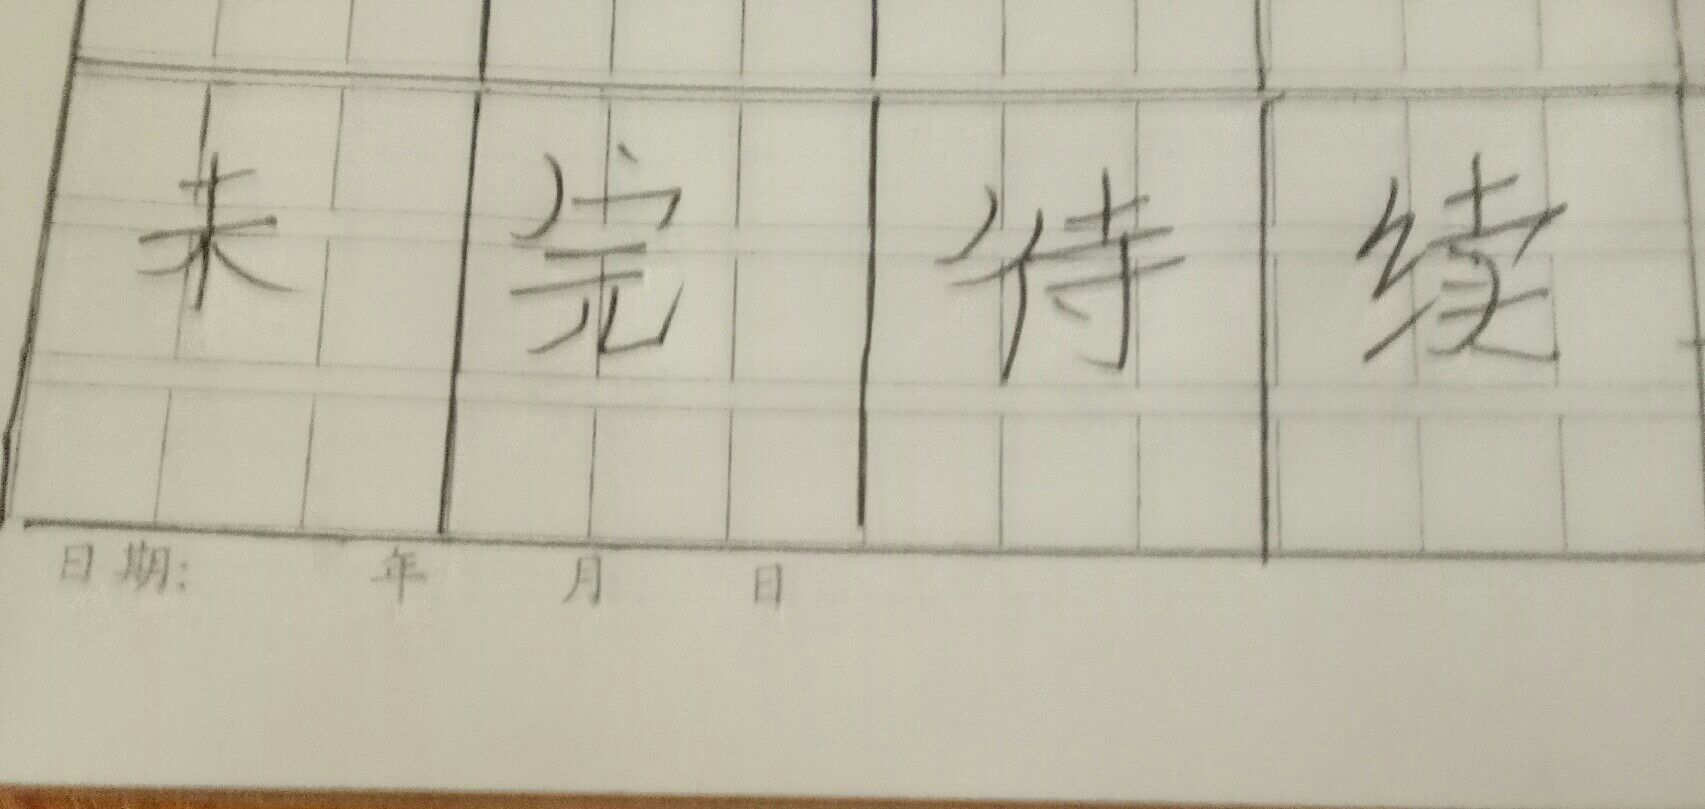 未完待续
日期: 年 月 日